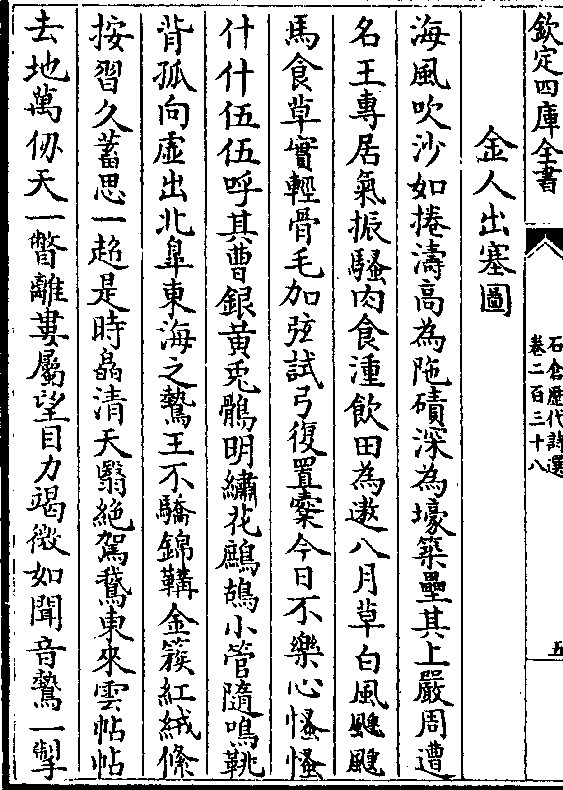 欽定四庫全書
石倉歴代詩選
卷二百三十八
五
金人出塞圖
海風吹沙如捲濤高為陁磧深為壕築壘其上嚴周遭
名王專居氣振騷肉食湩飲田為遨八月草白風颾颾
馬食草實輕骨毛加弦試弓復置櫜今日不樂心慅慅
什什伍伍呼其曹銀黄兎鶻明繡花鷓鴣小管隨鳴鞉
背孤向虚出北臯東海之鷙王不驕錦鞲金鏃紅絨絛
按習久蓄思一超是時晶清天翳絶駕鵞東來雲帖帖
去地萬仞天一瞥離婁屬望目力竭微如聞音鷙一掣